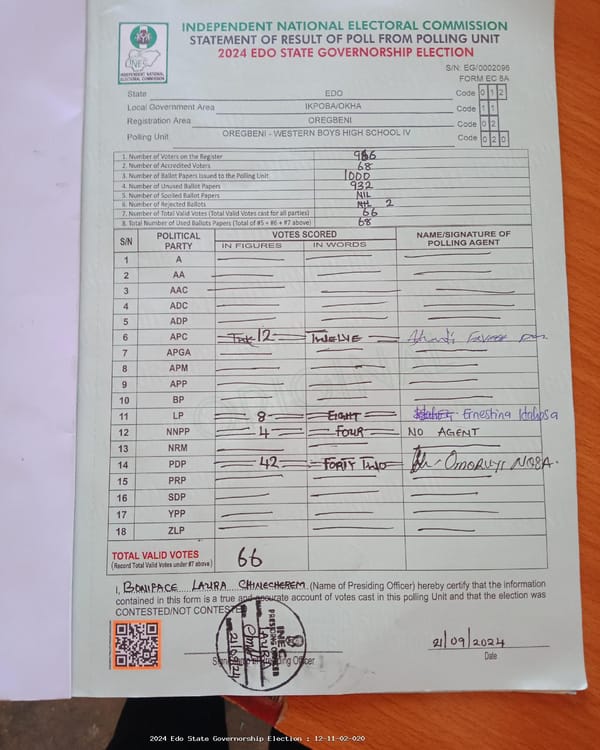 INDEPENDENT NATIONAL ELECTORAL COMMISSION
STATEMENT OF RESULT OF POLL FROM POLLING UNIT
2024 EDO STATE GOVERNORSHIP ELECTION
INEC
INDEPENDENT NATIONAL ELECTORAL COMMISSION
S/N: EG/0002096
FORM EC 8A
State EDO Code 0 1 2
Local Government Area IKPOBA/OKHA Code 1 1
Registration Area OREGBENI Code 0 2
Polling Unit OREGBENI - WESTERN BOYS HIGH SCHOOL IV Code 0 2 0
1. Number of Voters on the Register
2. Number of Accredited Voters 68
3. Number of Ballot Papers Issued to the Polling Unit 1000
4. Number of Unused Ballot Papers 932
5. Number of Spoiled Ballot Papers NIL
6. Number of Rejected Ballots 2
7. Number of Total Valid Votes (Total Valid Votes cast for all parties) 66
8. Total Number of Used Ballots Papers (Total of #5 + #6 + #7 above) 68
S/N POLITICAL PARTY VOTES SCORED NAME/SIGNATURE OF POLLING AGENT
IN FIGURES IN WORDS
1 A
2 AA
3 AAC
4 ADC
5 ADP
6 APC 12 TWELVE
7 APGA
8 APM
9 APP
10 BP
11 LP 8 EIGHT Ernestina Idahosa
12 NNPP 4 FOUR NO AGENT
13 NRM
14 PDP 42 FORTY TWO OMORUYI
15 PRP
16 SDP
17 YPP
18 ZLP
TOTAL VALID VOTES 66
(Record Total Valid Votes under #7 above)
I, BONIFACE LAURA CHINECHEREM (Name of Presiding Officer) hereby certify that the information
contained in this form is a true and accurate account of votes cast in this polling Unit and that the election was
CONTESTED/NOT CONTESTED
INEC
PRESIDING OFFICER
21/09/2024
Date
2024 Edo State Governorship Election : 12-11-02-020